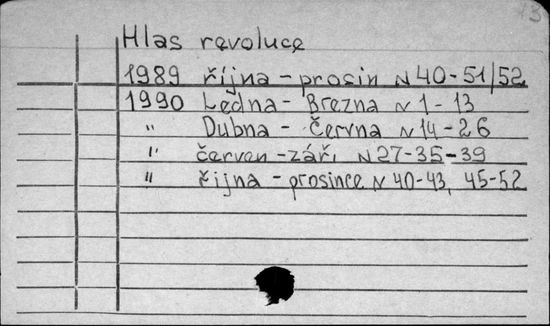 13
Hlas revoluce
1989 řijna - prosin N 40-51/52
1990 Ledna - Brezna N 1-13
" Dubna - Června N 14-26
" červen - září N 27-35-39
" řijna - prosince N 40-43, 45-52